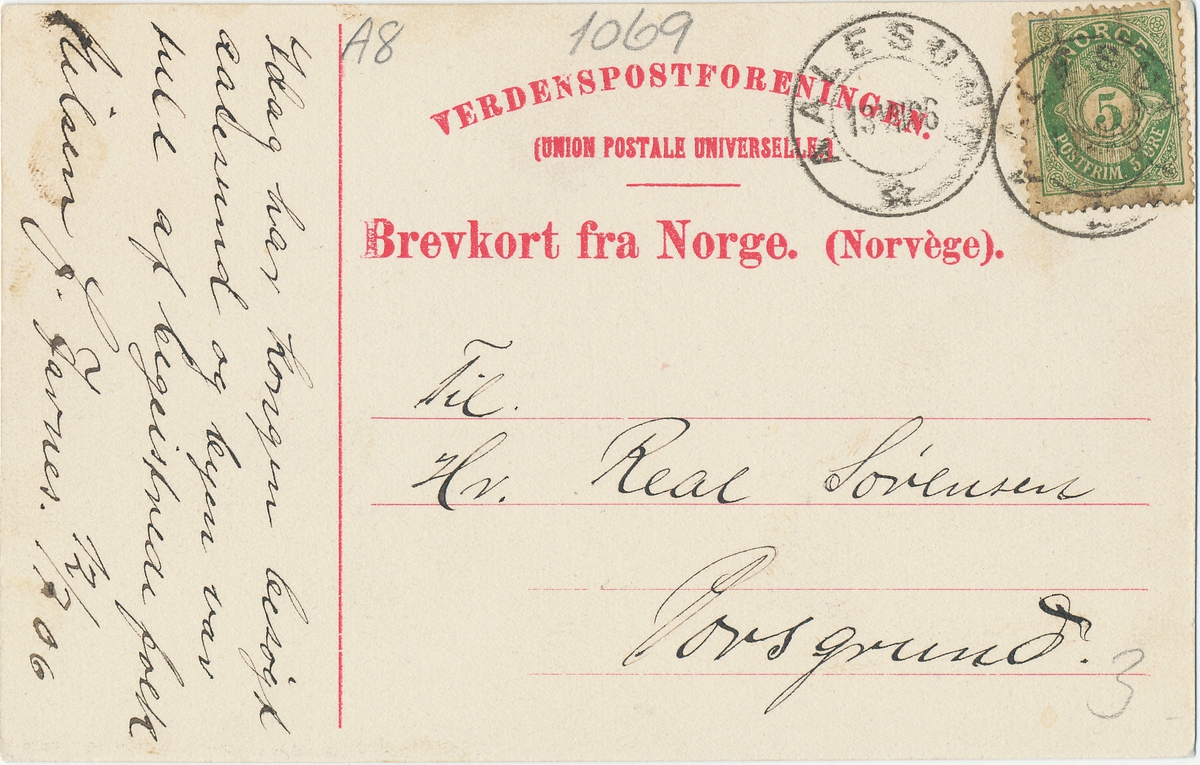 A8
1069
VERDENSPOSTFORENINGEN.
(UNION POSTALE UNIVERSELLE.)
Brevkort fra Norge. (Norvège).
AALESUND
13 VII 06
NORGE
5
POSTFRIM. 5 ØRE
AALESUND
Til.
Hr. Real Sørensen
Porsgrund.
3
Idag har kongen besøgt
Aalesund og byen var
full af begeistrede folk
Hilsen J. Jarnes. 12/7 06